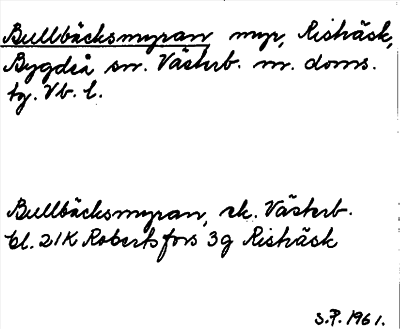 Bullbäcksmyran myr, Risträsk,
Bygdeå sn. Västerb. n. doms.
tg. Vb. l.
Bullbäcksmyran, ek. Västerb.
bl. 21K Robertsfors 3g Risträsk
S.P. 1961.